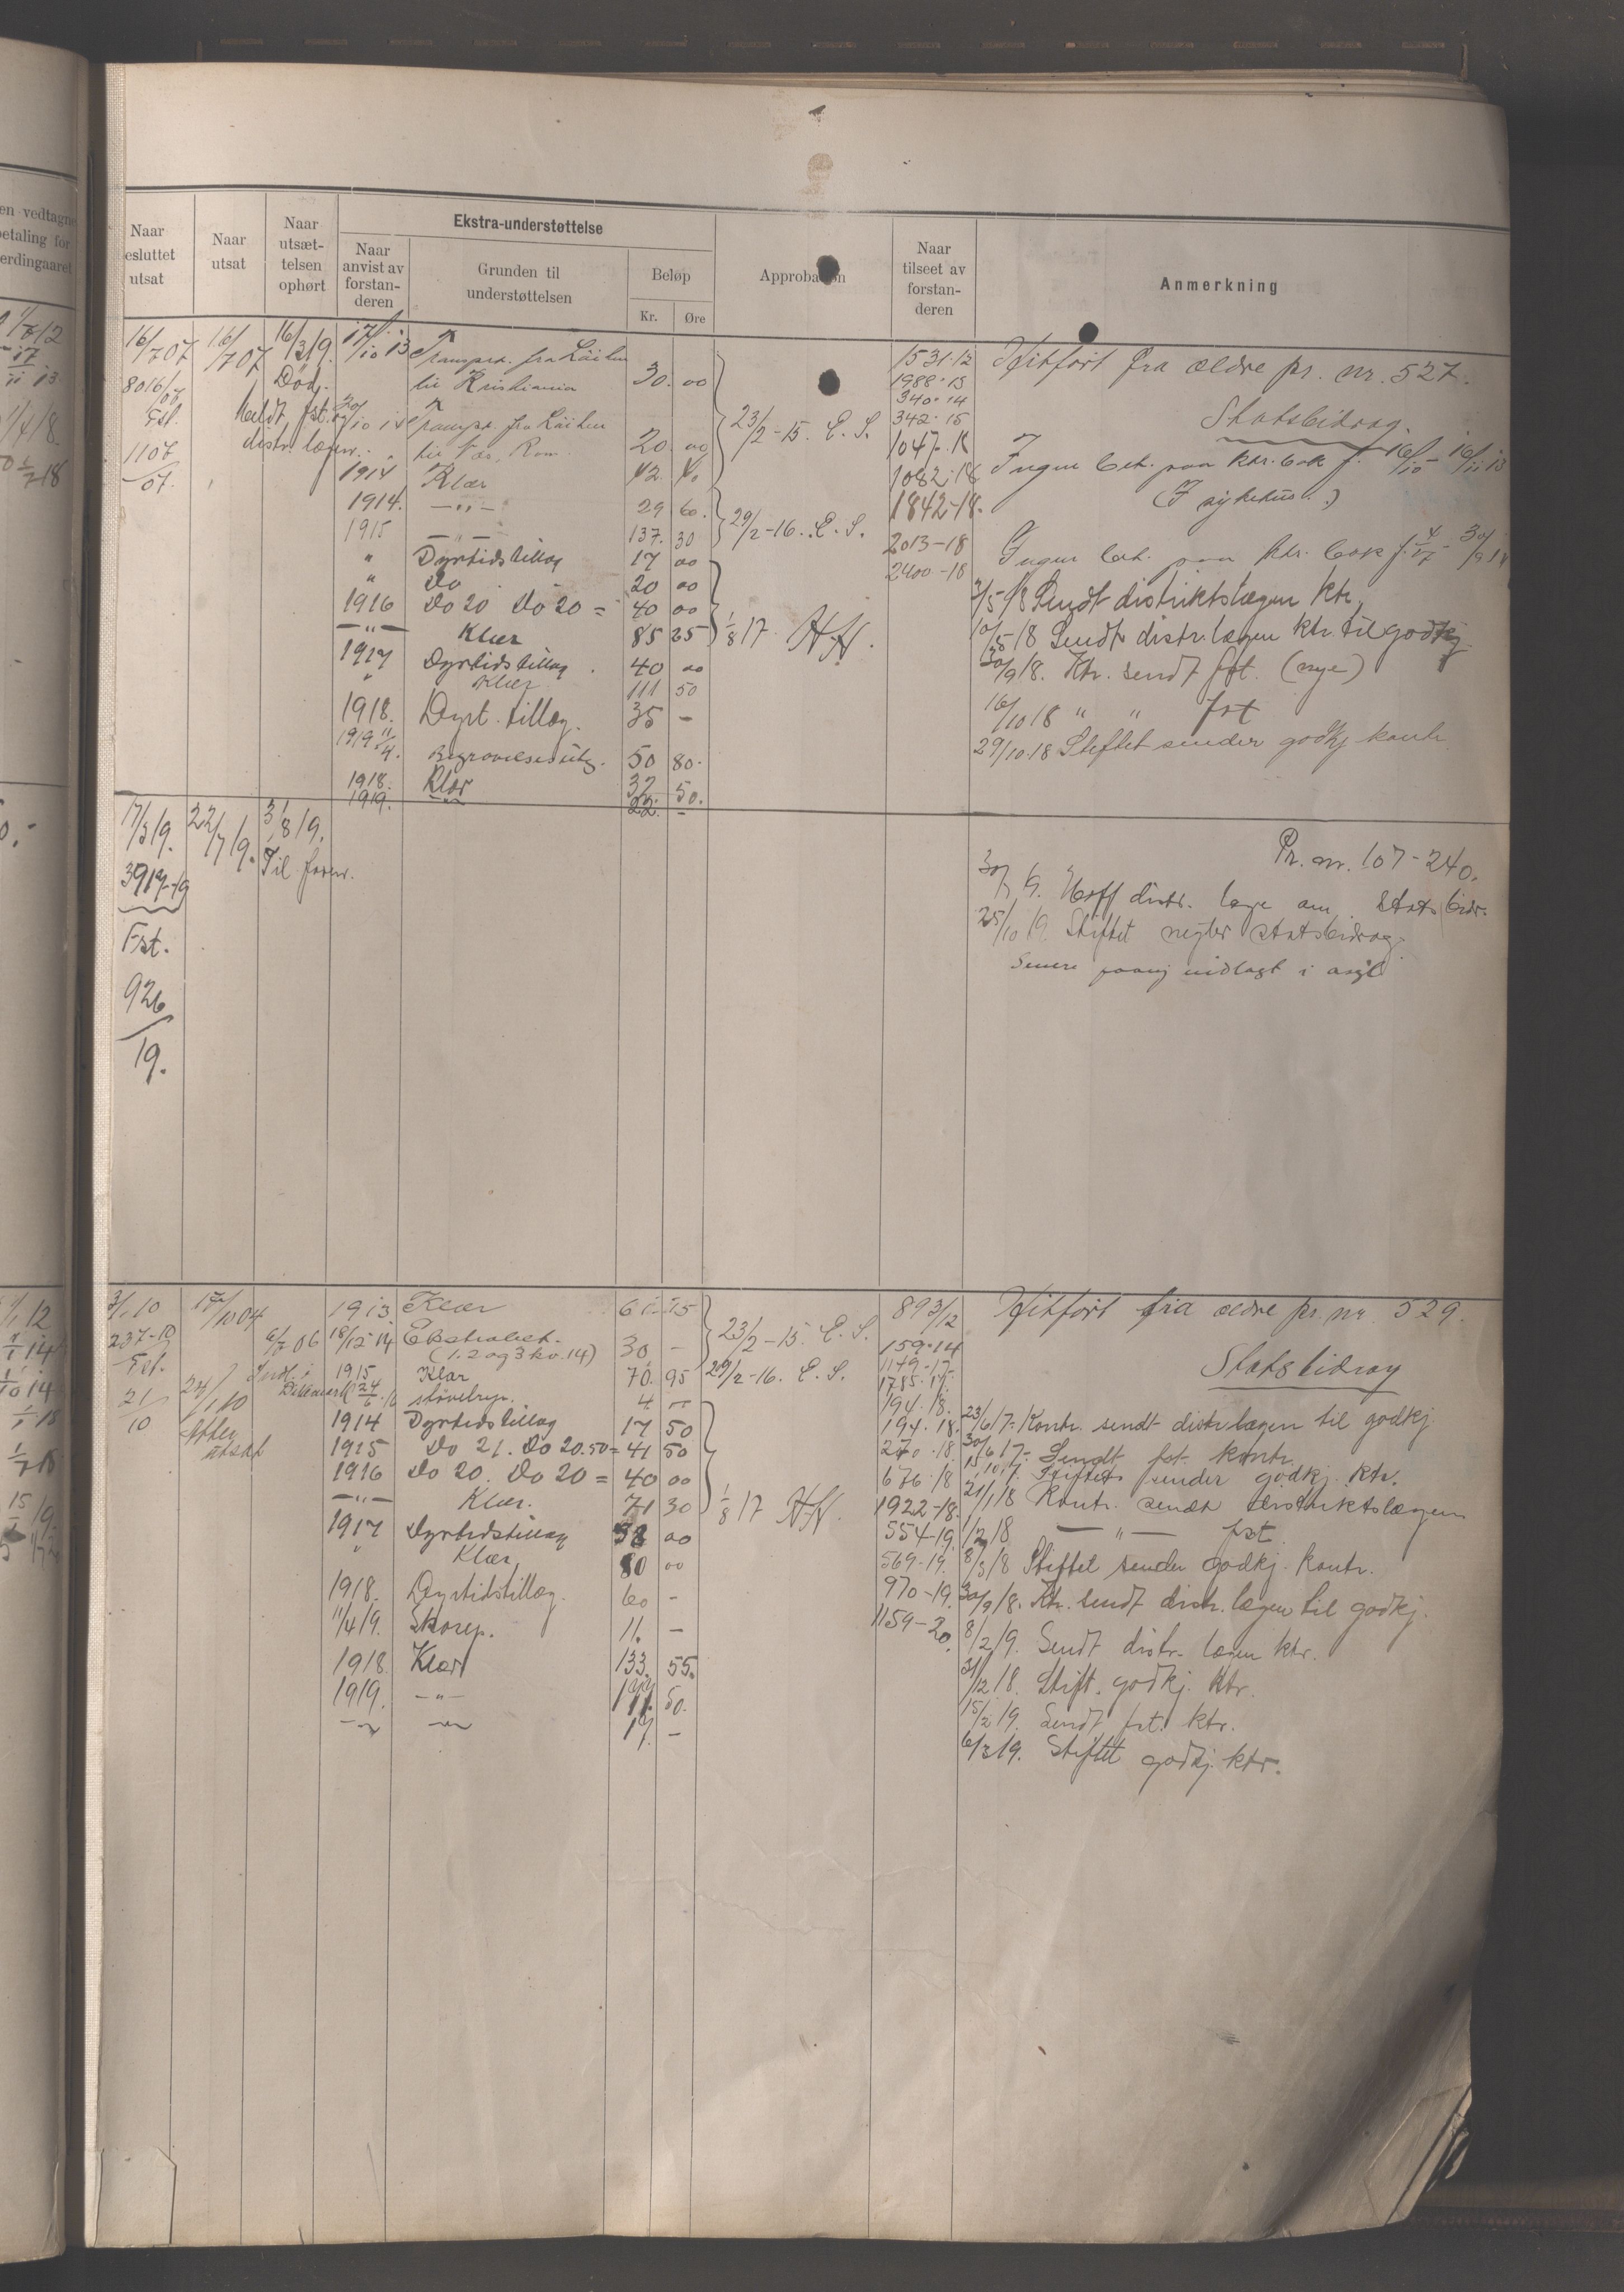 en vedtagne
betaling for
erdingaaret
Naar
esluttet
utsat
Naar
utsat
Naar
utsæt-
telsen
ophørt
Ekstra-understøttelse
Naar
anvist av
forstan-
deren
Grunden til
understøttelsen
Beløp
Kr.
Øre
Approbation
Naar
tilseet av
forstan-
deren
Anmerkning
16/7 07
16/7 07
16/3 19.
17/10 13
Transp. fra
1531.12
Hitført fra ældre pr. nr. 527.
8016/07
Død.
til Kristiania
30. 00
1988.13
340.14
Fst.
Meldt fst. og
20/10 14
Transp. fra
23/2-15. E. S.
342.15
Statsbidrag.
1107/07.
distr. lægen.
til
20. 00
1047.18
Ingen bet. paa ktr. bok f. 16/10 - 16/11 13
1914
Klær
1082.18
(I sykehus.)
1914.
—„—
29 60.
1842-18.
1915
—„—
137. 30
29/2-16. E. S.
2013-18
Ingen bet. paa ktr. bok f.
„
Dyrtidstillæg
17 00
2400-18
„
Do
20 00
2/5 18 Sendt distriktslægen ktr.
1916
Do 20 Do 20 =
40 00
—„—
Klær
85 25
1/8 17. HH.
10/5 18 Sendt distr. lægen ktr. til godkj.
1917
Dyrtidstillæg
40 00
30/9 18. Ktr. sendt fst. (nye)
„
Klær
111 50
1918.
Dyrt. tillæg.
35 -
16/10 18 „ „ fst
1919 11/4.
Begravelsesutg.
50 80.
29/10 18 Stiftet sender godkj kontr
1918.
Klær
32 50.
1919.
—„—
22. -
17/3 19.
22/7 19.
3/8 19.
Pr. nr. 107-240.
3917-19
Til forsv.
30/7 19. distr. læge om Stats bidr.
Fst.
25/10 19. Stiftet negter Statsbidrag.
926/19.
Senere paany indlagt i asyl
3/1 10
17/10 04
1913
Klær
61. 75
893/12
Hitført fra ældre pr. nr. 529.
237-10
6/7 06
18/12 14
Ekstrabet.
(1. 2 og 3 kv. 14)
30 -
23/2-15. E. S.
159.14
Fst.
Indl. i
1915
Klær
70. 95
29/2-16. E. S.
1149-17.
Statsbidrag
21/10
24/1 10
Dikemark
24/6 16
støvelrep.
4 -
1785.17.
Atter
utsat
194.18.
1914
Dyrtidstillæg
17 50
194.18.
23/6 17.- Kontr. sendt distr. lægen til godkj
1915
Do 21. Do 20.50 =
41 50
270.18
30/6 17.- Sendt fst. kontr.
1916
Do 20. Do 20 =
40 00
676.18
Stiftet sender godkj. ktr.
—„—
Klær.
71 30
1/8 17 HH.
1922-18.
21/1 18 Kontr. sendt distriktslægen
1917
Dyrtidstillæg
58 00
554-19.
1/2 18 —„— fst
„
Klær
80 00
569-19.
8/3 18 Stiftet sender godkj. kontr.
1918.
Dyrtidstillæg.
60 -
970-19.
30/9 18. Ktr. sendt distr. lægen til godkj.
11/4 19.
Skorep.
11. -
1159-20.
8/2 19. Sendt distr. lægen ktr.
1918
Klær
133. 55.
31/12 18. Stift. godkj. ktr.
1919.
—„—
111. 50.
15/2 19. Sendt fst. ktr.
—„—
—„—
17. -
6/3 19. Stiftet godkj. ktr.